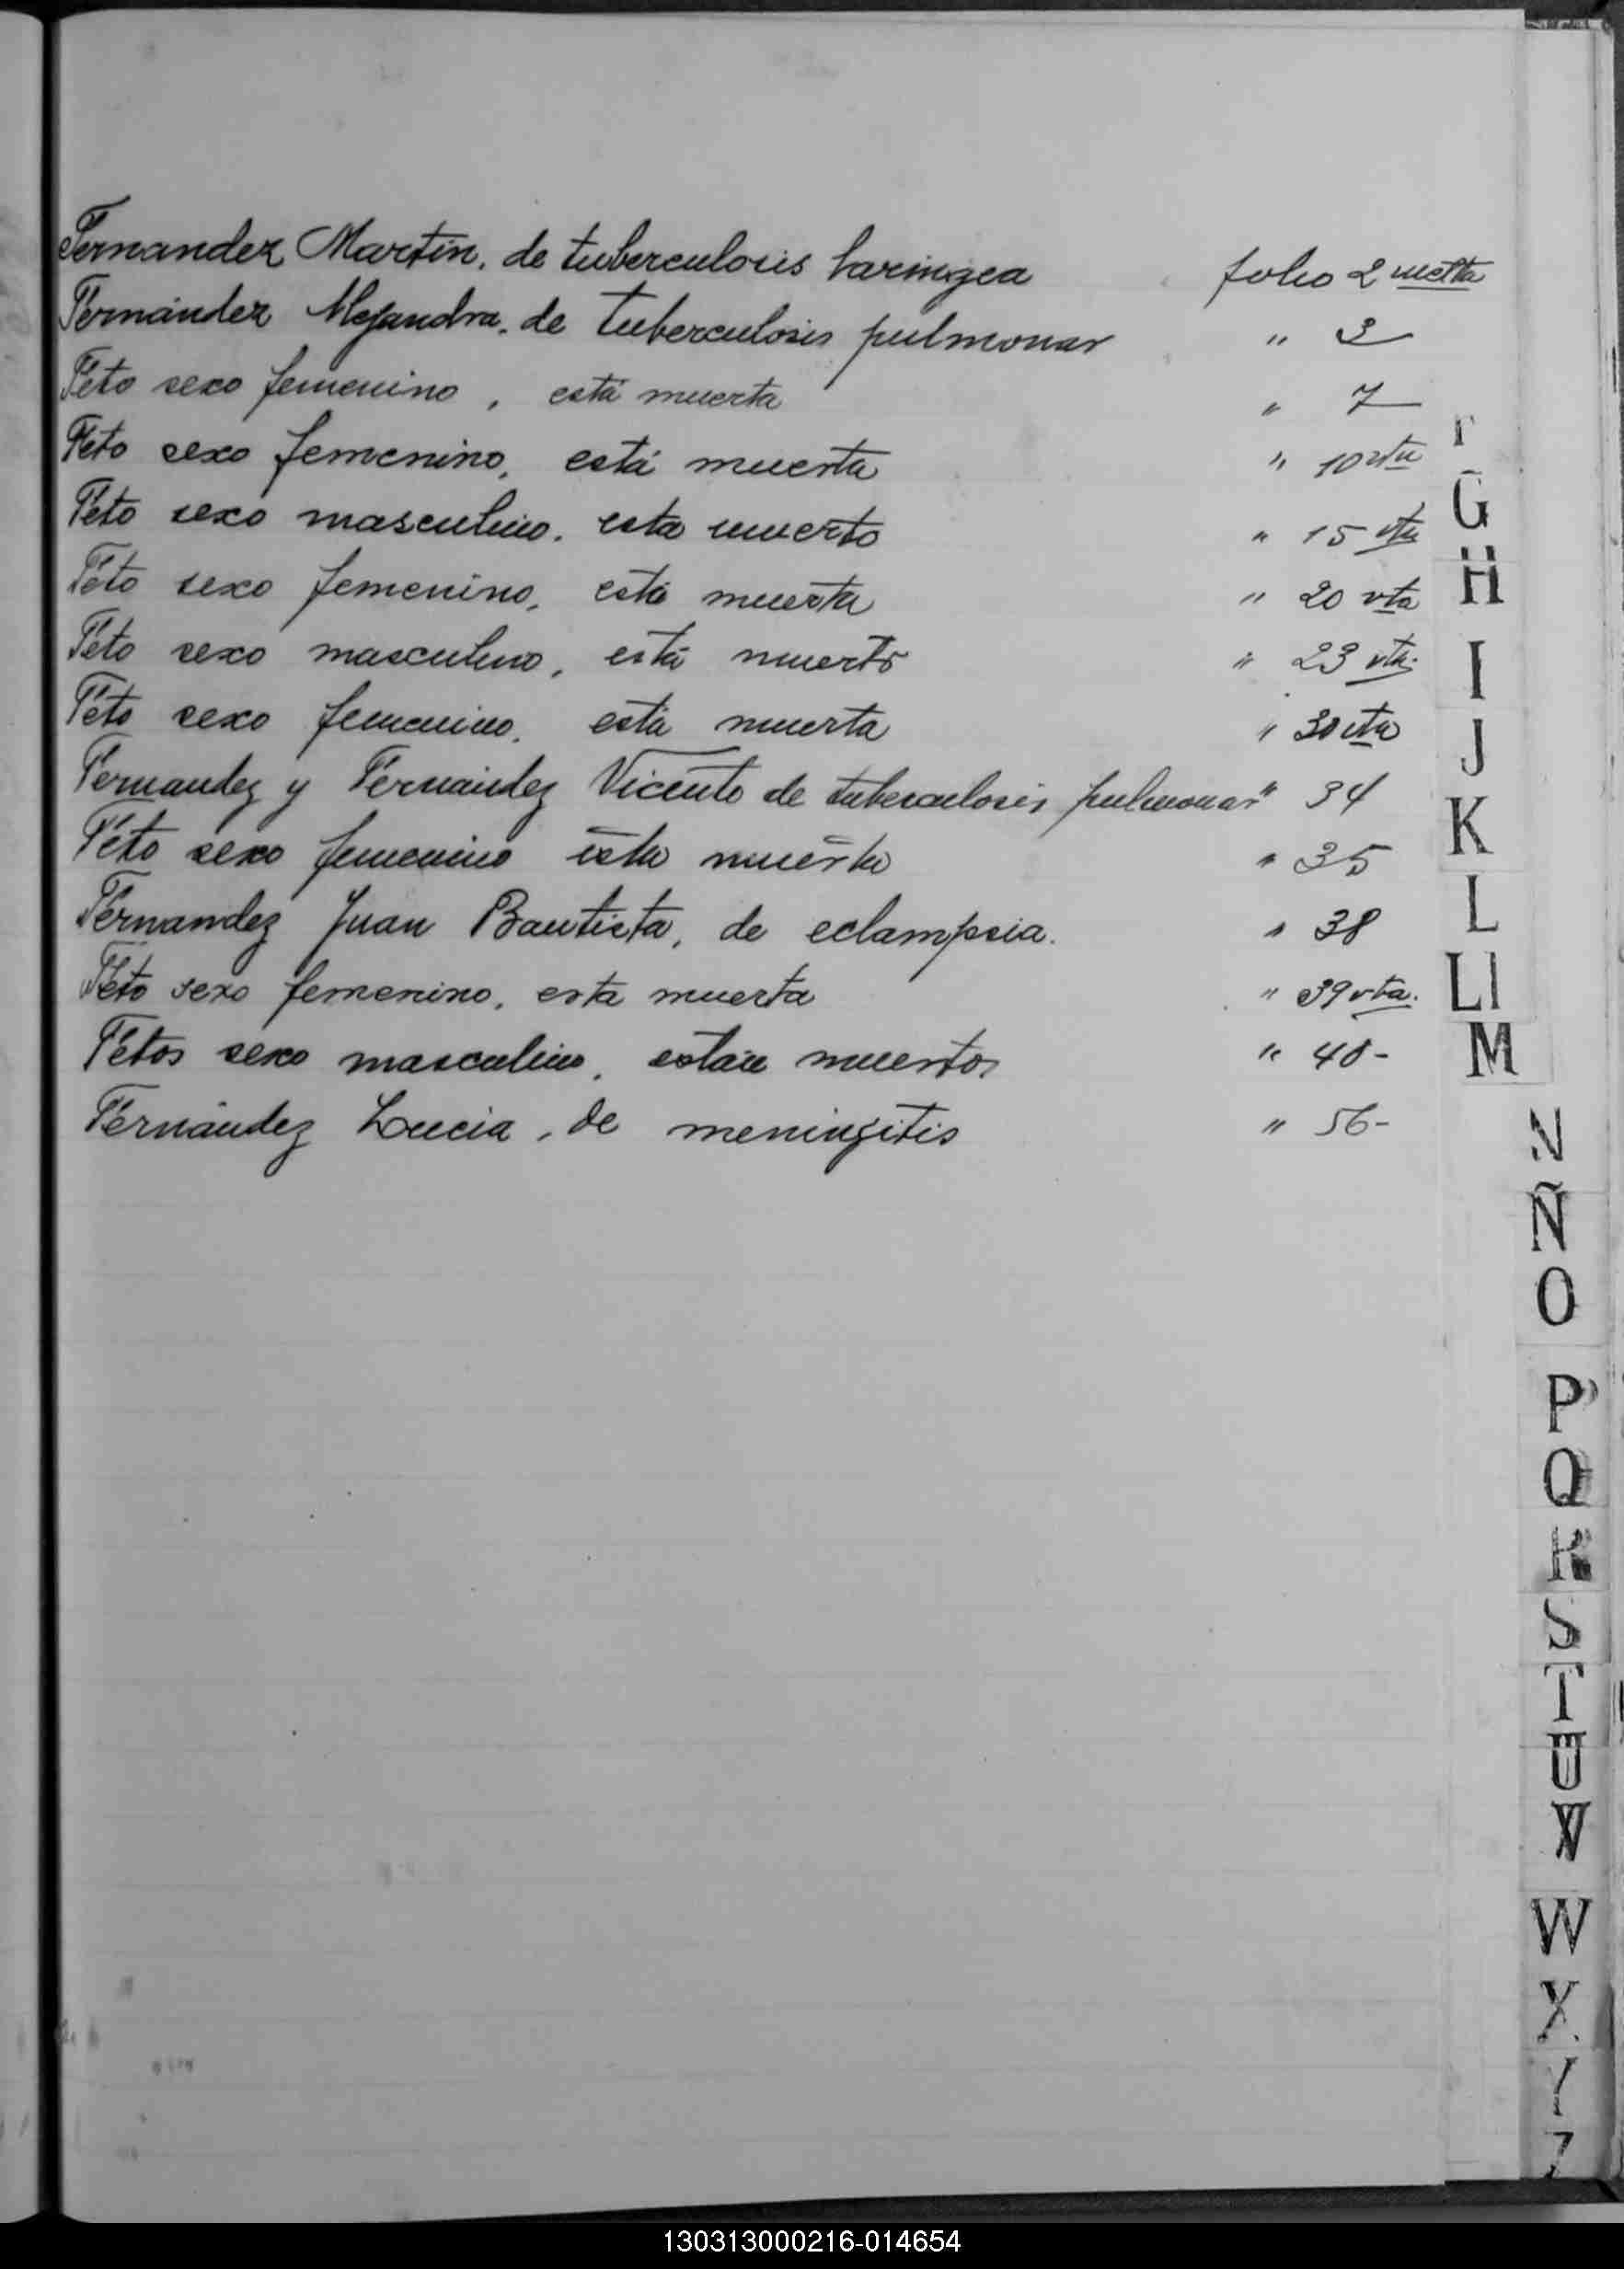 Fernandez Martín, de tuberculosis laringea folio 2 vuelta
Fernández Alejandra, de tuberculosis pulmonar " 3
Feto sexo femenino, está muerta " 7
Feto sexo femenino, está muerta " 10 vta
Feto sexo masculino, esta muerto " 15 vta
Feto sexo femenino, está muerta " 20 vta
Feto sexo masculino, está muerto " 23 vta.
Feto sexo femenino, está muerta " 30 vta
Fernandez y Fernández Vicente de tuberculosis pulmonar " 34
Feto sexo femenino esta muerta " 35
Fernandez Juan Bautista, de eclampsia. " 38
Feto sexo femenino, esta muerta " 39 vta.
Fetos sexo masculino, están muertos " 40-
Fernández Lucia, de meningitis " 56-
F
G
H
I
J
K
L
Ll
M
N
Ñ
O
P
Q
R
S
T
U
V
W
X
Y
Z
130313000216-014654